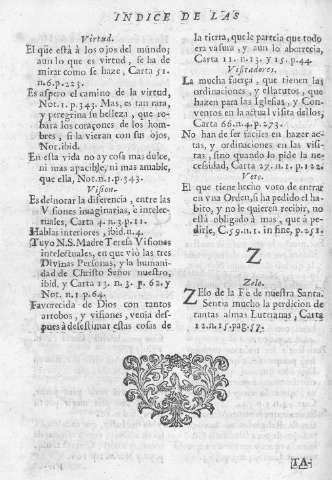 INDICE DE LAS
Virtud.
El que está à los ojos del mundo;
aun lo que es virtud, se ha de
mirar como se haze, Carta 51.
n.6.p.223.
Es aspero el camino de la virtud,
Not.1.p.343. Mas, es tan rara,
y peregrina su belleza, que ro-
bara los coraçones de los hom-
bres, si la vieran con sus ojos,
Not.ibid.
En esta vida no ay cosa mas dulce,
ni mas apacible, ni mas amable,
que ella, Not.n.1.p.343.
Vision.
Es de notar la diferencia, entre las
Visiones imaginarias, è intelec-
tuales, Carta 4.n.3.p.11.
Hablas interiores, ibid.n.4.
Tuvo N.S. Madre Teresa Visiones
intelectuales, en que viò las tres
Divinas Personas, y la humani-
dad de Christo Señor nuestro,
ibid, y Carta 13. n.3. p. 62. y
Not. n.1 p.64.
Favorecida de Dios con tantos
arrobos, y visiones, venia des-
pues à desestimar estas cosas de
la tierra, que le parecia que todo
era vasura, y aun lo aborrecia,
Carta 11. n.13. y 15. p.44.
Visitadores.
La mucha fuerça, que tienen las
ordinaciones, y estatutos, que
hazen para las Iglesias, y Con-
ventos en la actual visita dellos;
Carta 66.n.4.p.273.
No han de ser faciles en hazer ac-
tas, y ordinaciones en las visi-
tas, sino quando lo pide la ne-
cessidad, Carta 27.n.1.p.122.
Voto.
El que tiene hecho voto de entrar
en vna Orden, si ha pedido el ha-
bito, y no le quieren recibir, no
està obligado à mas, que à pe-
dirle, C.59.n.1. in fine, p.251.
Z
Zelo.
Zelo de la Fè de nuestra Santa.
Sentia mucho la perdicion de
tantas almas Luteranas, Carta
12.n.15.pag.57.
TA-